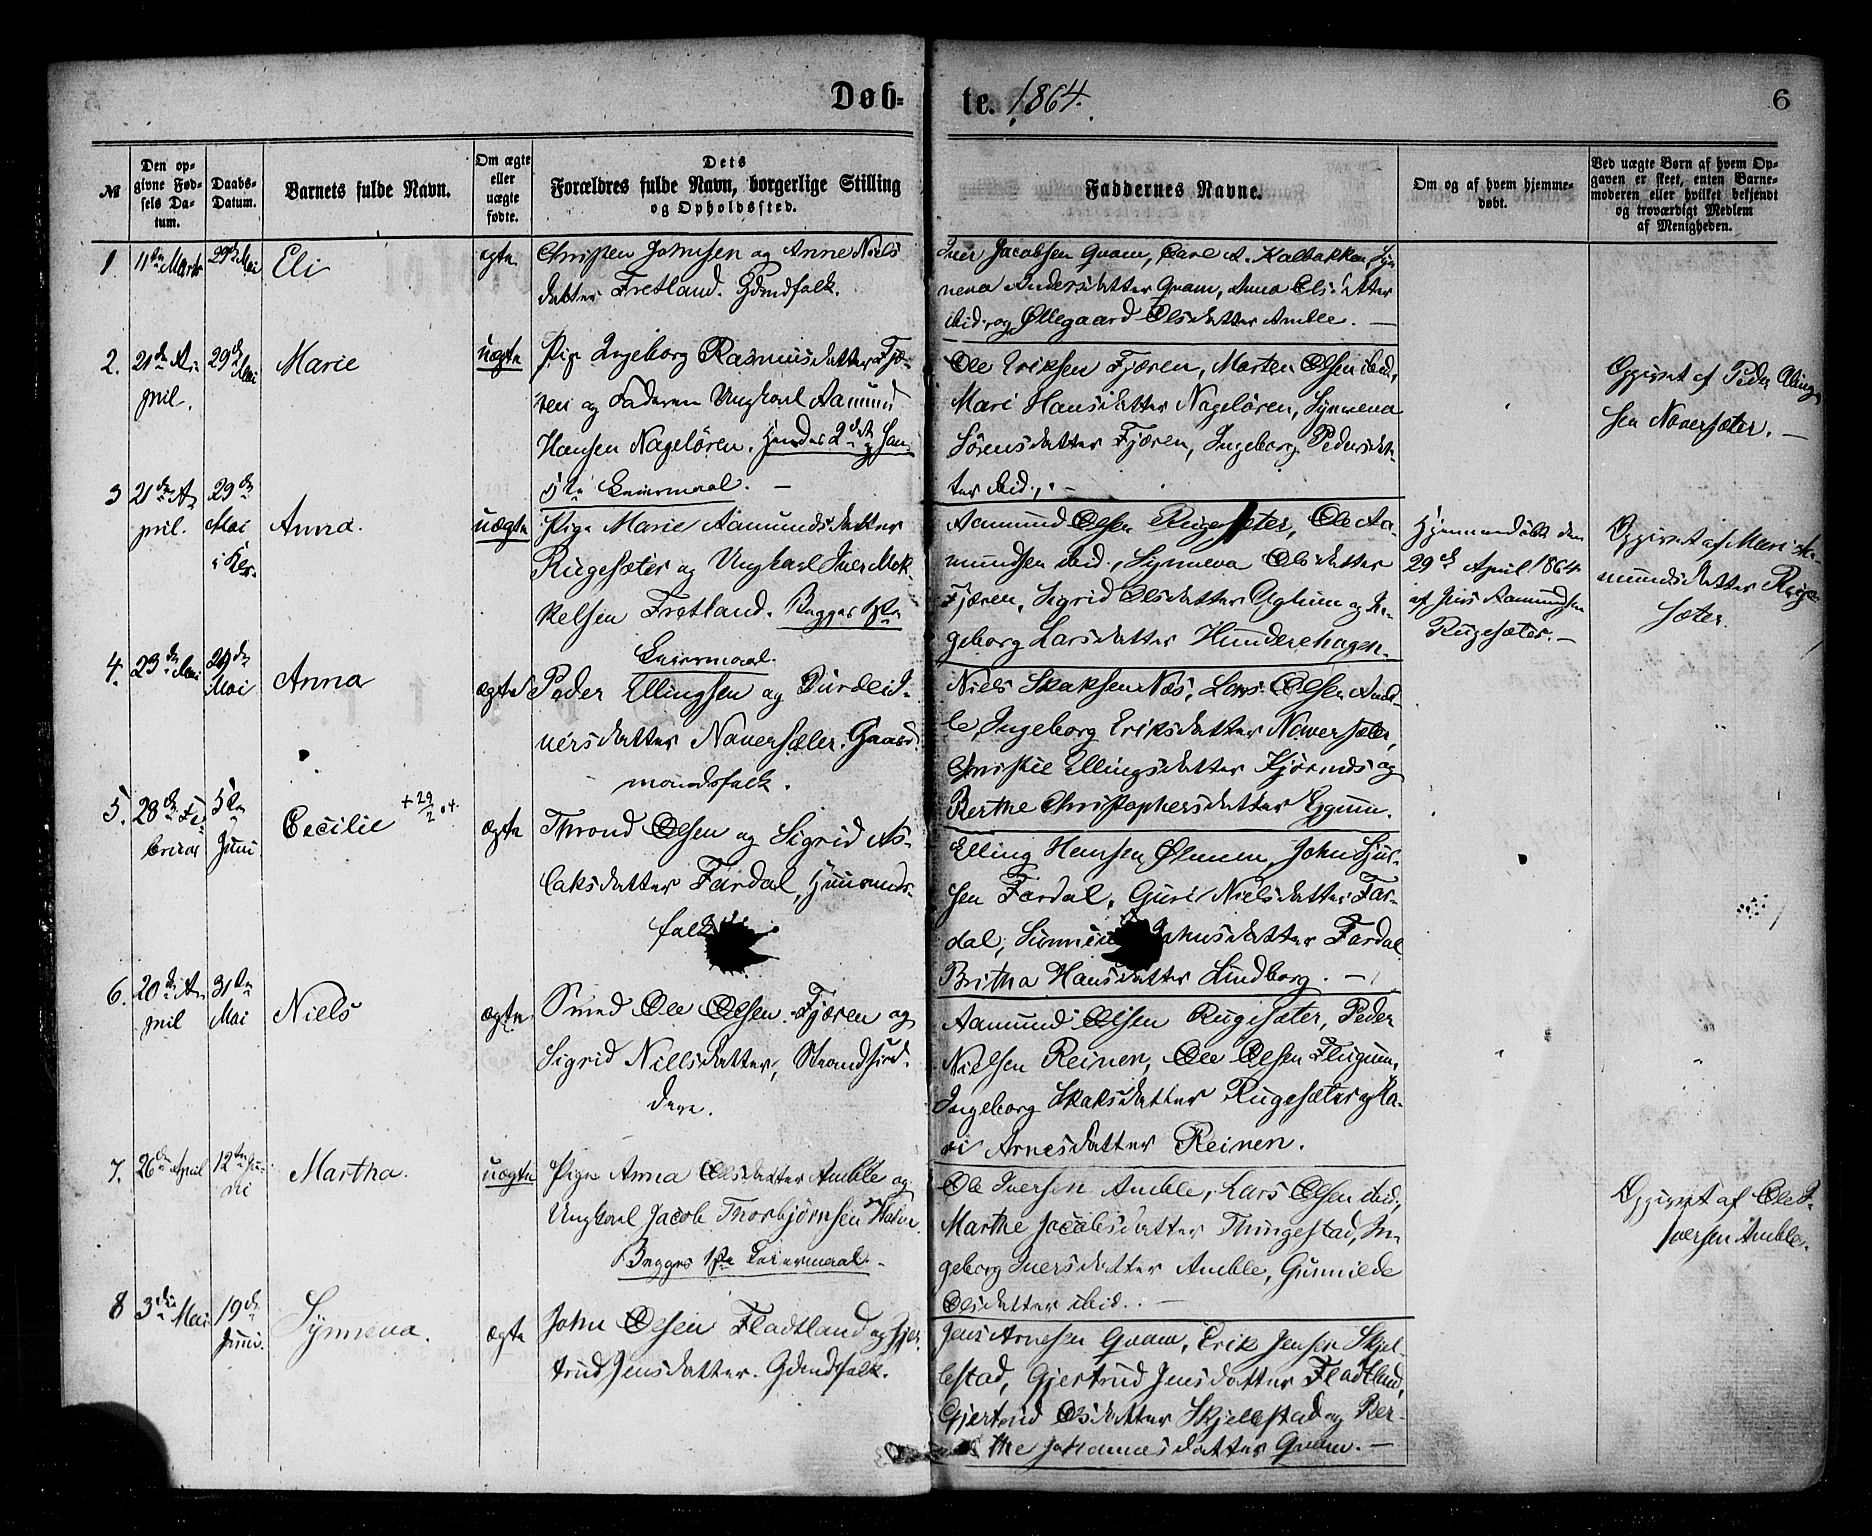 Døb-
te. 1864.
6
№
Den op-
givne Fød-
sels Da-
tum.
Daabs-
Datum.
Barnets fulde Navn.
Om ægte
eller
uægte
fødte.
Dets
Forældres fulde Navn, borgerlige Stilling
og Opholdssted.
Faddernes Navne.
Om og af hvem hjemme-
døbt.
Ved uægte Børn af hvem Op-
gaven er skeet, enten Barne-
moderen eller hvilket bekjendt
og troværdigt Medlem
af Menigheden.
1 11te Marts
29de Mai
Eli
ægte
Christen Johnsen og Anne Niels
datter Fretland. Gdmdfolk.
Iver Jacobsen Quam, Carl A. Kalbakken, Syn
neva Andersdatter Quam, Anna Olsdatter
ibid. og Øllegaard Olsdatter Amble. —
2. 21de A-
pril.
29de
Mai
Marie
uægte
Pige Ingeborg Rasmusdatter Fjæ-
ren og Faderen Ungkarl Aamund
Hansen Nageløren. Hendes 2det og Han-
5te Leiermaal. —
Ole Eriksen Fjæren, Morten Olsen ibid,
Mari Hansdatter Nageløren, Synneva
Sørensdatter Fjæren, Ingeborg Pedersdat-
ter ibid., . —
Opgivet af Peder Elling-
sen Noversæter. —
3 21de A-
pril.
29de
Mai
i Kir.
Anna.
uægte
Pige Marie Aamundsdatter
Rugesæter og Ungkarl Iver Mik-
kelsen Fretland. Begges 1ste
Leiermaal.
Aamund Olsen Rugesæter, Ole Aa-
mundsen ibid., Synneva Olsdatter
Fjæren, Sigrid Olsdatter Aghum og In-
geborg Larsdatter Hunderehagen.
Hjemmedøbt den
29de April 1864
af Jens Aamundsen
Rugesæter. —
Opgivet af Mari A-
mundsdatter Ruge-
sæter.
4. 23de Mai
29de
Mai
Anna
ægte
Peder Ellingsen og Durdei I-
versdatter Noversæter. Gaard-
mandsfolk.
Niels Skaksen Næs, Lars Olsen Amb-
le, Ingeborg Eriksdatter Noversæter,
Christie Ellingsdatter Kjørnæs og
Berthe Christophersdatter Eggum.
5. 28de Fe-
bruar
5te
Juni
Cecilie + 29/2 04.
ægte
Thrond Olsen og Sigrid As-
laksdatter Fardal, Huusmands-
folk
Elling Hansen Ølmem, John Sjur-
sen Fardal, Guri Nielsdatter Far-
dal, Johnsdatter Fardal
Britha Hansdatter Lindborg. —
6. 20de A-
pril
31te
Mai
Niels
ægte
Smed Ole Olsen Fjæren og
Sigrid Nielsdatter, Strandsid-
dere.
Aamund Olsen Rugesæter, Peder
Nielsen Reinen, Ole Olsen Flugum,
Ingeborg Skaksdatter Rugesæter og Ka-
ri Arnesdatter Reinen.
7. 26de April
12te Ju-
ni
Martha.
uægte
Pige Anna Olsdatter Amble og
Ungkarl Jacob Thorbjørnsen
Begges 1ste Leiermaal. -
Ole Iversen Amble, Lars Olsen ibid,
Marthe Jacobsdatter Thingestad, In-
geborg Iversdatter Amble, Gunnilde
Olsdatter ibid.. —
Opgivet af Ole I-
versen Amble.
8 3die Mai
19de
Juni.
Synneva.
ægte
John Olsen Fladtland og Gjer-
trud Jensdatter. Gdmdsfolk.
Jens Arnesen Quam, Erik Jensen Skjel-
lestad, Gjertrud Jensdatter Fladtland,
Gjertrud Olsdatter Skjellestad og Ber-
the Johannesdatter Quam. —